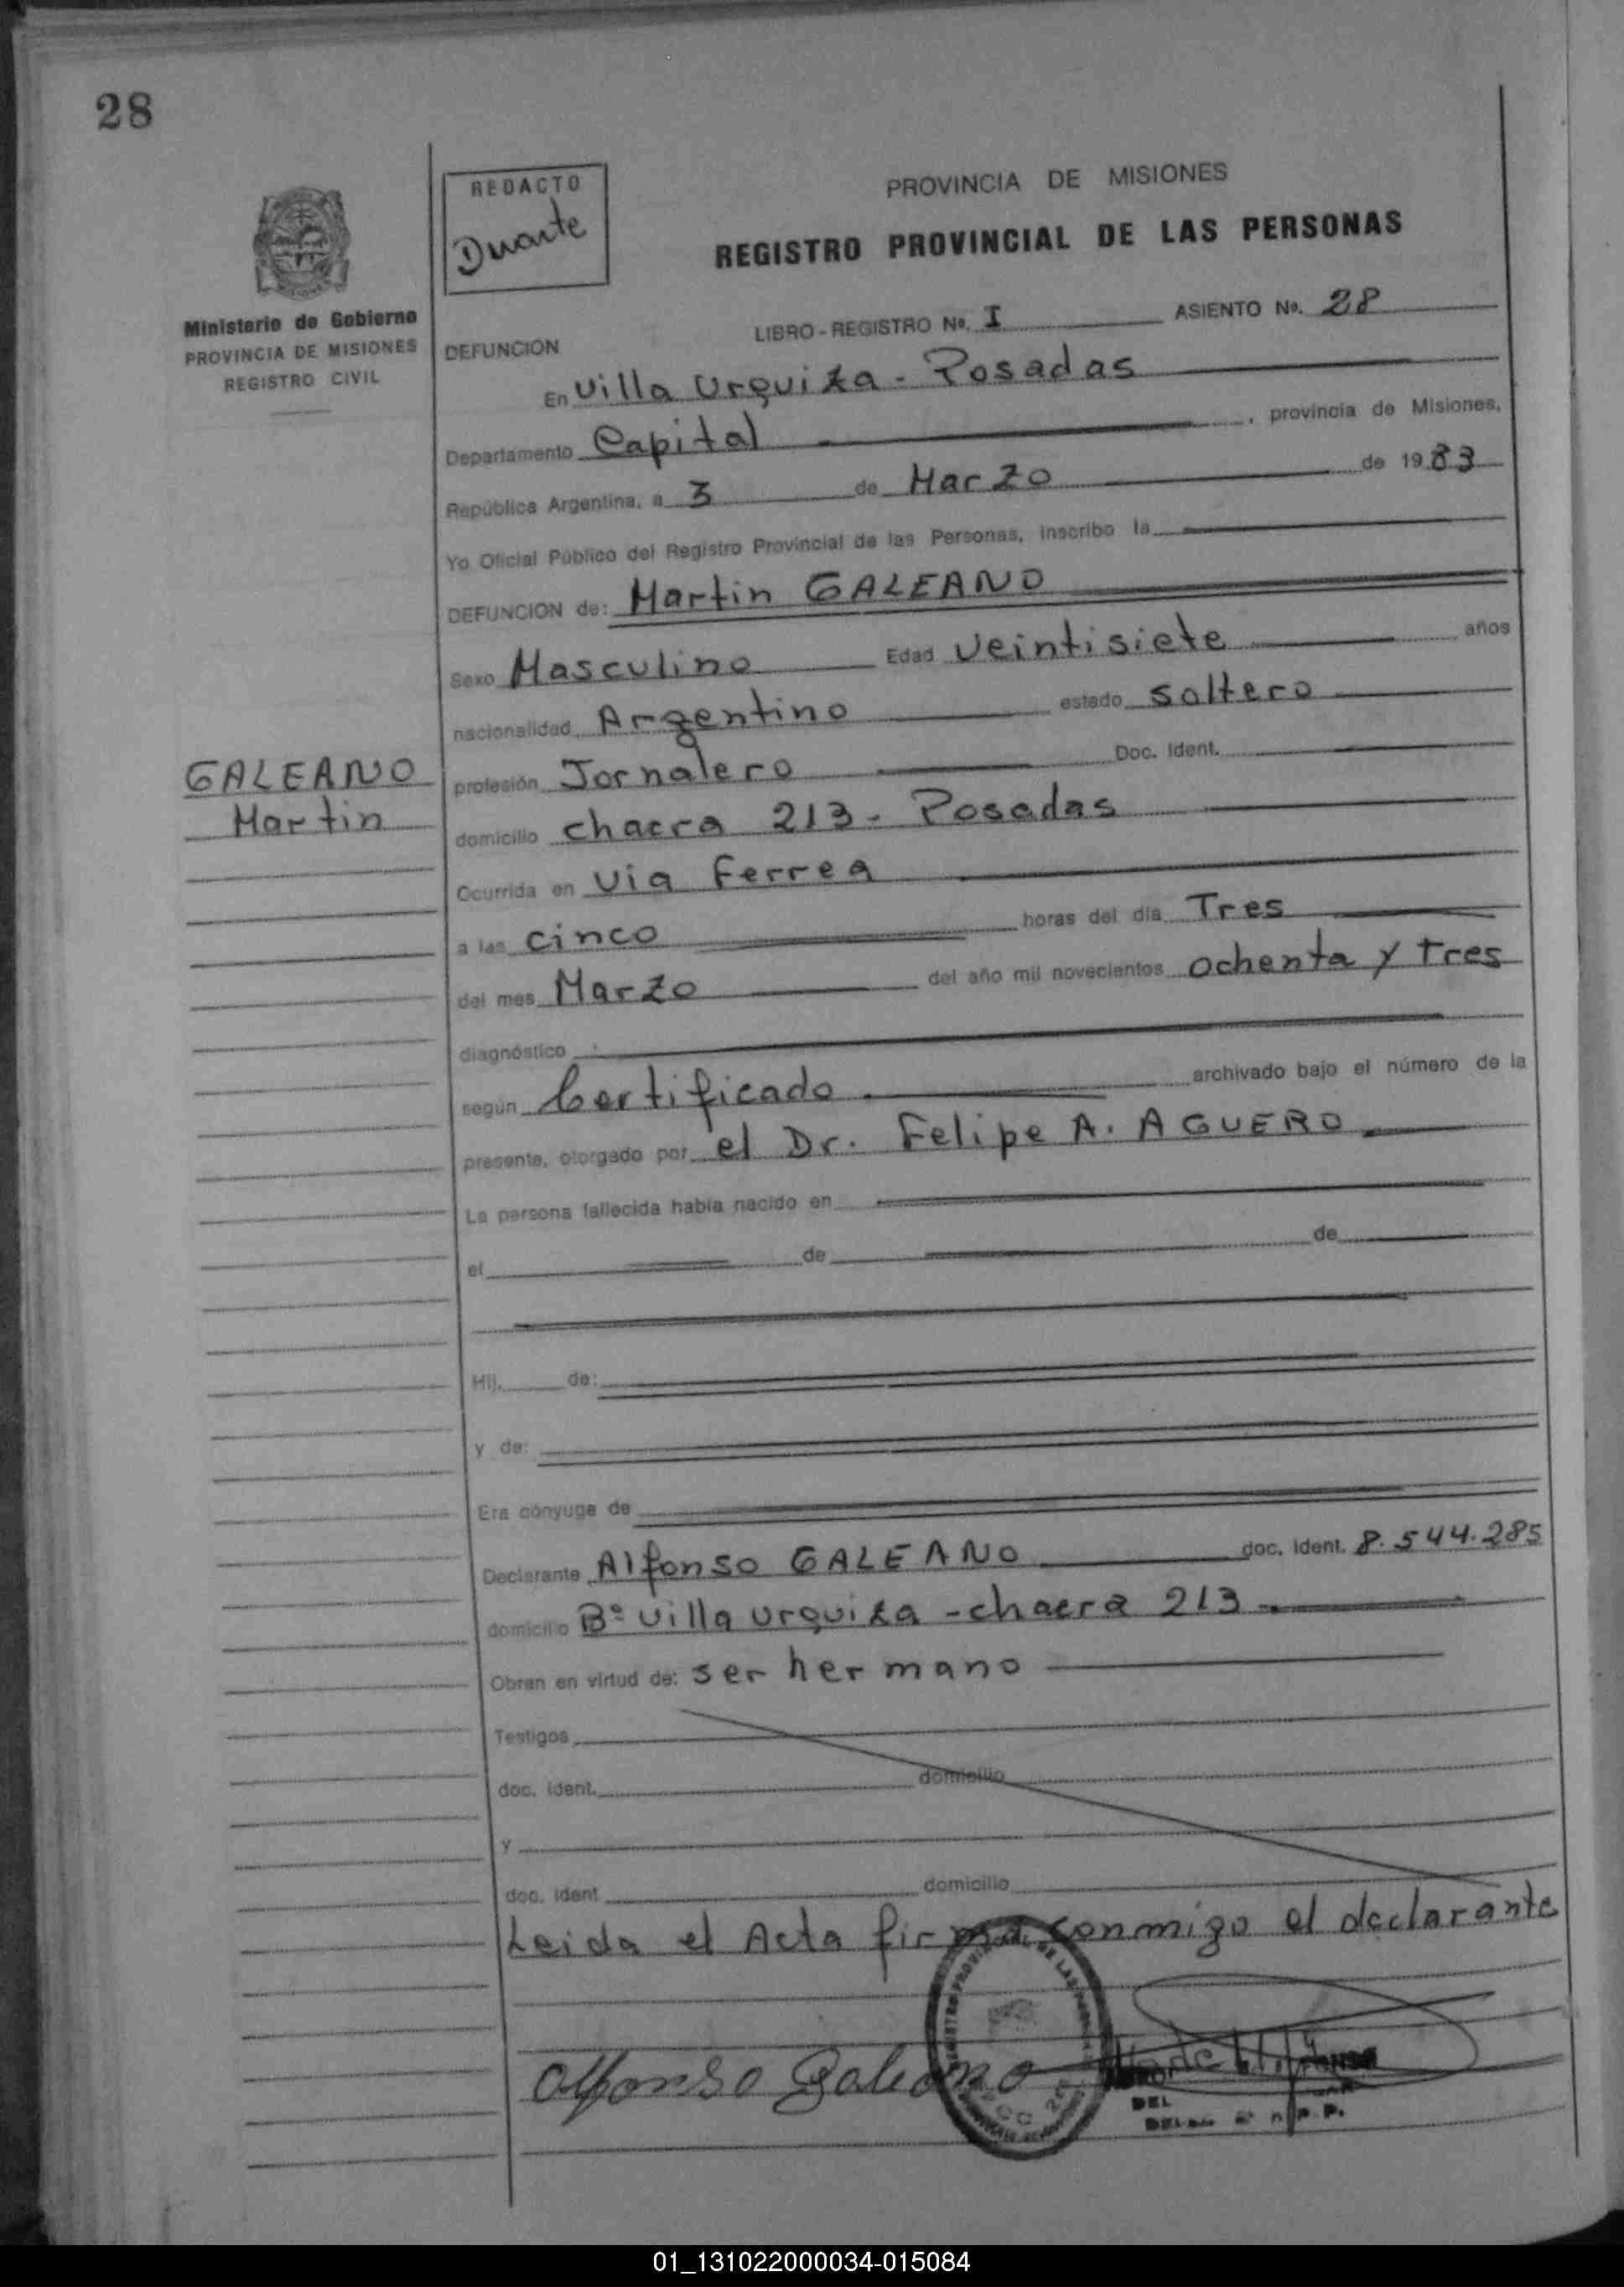 28
REDACTO
Duarte
PROVINCIA DE MISIONES
REGISTRO PROVINCIAL DE LAS PERSONAS
Ministerio de Gobierno
PROVINCIA DE MISIONES
REGISTRO CIVIL
LIBRO-REGISTRO No. I ASIENTO No. 28
DEFUNCION
En Villa Urquiza - Posadas
Departamento Capital, provincia de Misiones,
República Argentina, a 3 de Marzo de 1983
Yo Oficial Público del Registro Provincial de las Personas, inscribo la
DEFUNCION de: Martin GALEANO
Sexo Masculino Edad Veintisiete años
nacionalidad Argentino estado soltero
GALEANO
Martin
profesión Jornalero Doc. Ident.
domicilio chacra 213 - Posadas
Ocurrida en Via Ferrea
a las cinco horas del día Tres
del mes Marzo del año mil novecientos ochenta y tres
diagnóstico
según Certificado archivado bajo el número de la
presente, otorgado por el Dr. Felipe A. AGUERO
La persona fallecida había nacido en
el de de
Hij. de:
y de:
Era cónyuge de
Declarante Alfonso GALEANO doc. ident. 8.544.285
domicilio Bº Villa Urquiza - chacra 213
Obran en virtud de: ser hermano
Testigos
doc. ident. domicilio
y
doc. ident domicilio
Leida el Acta firma conmigo el declarante
Alfonso Galeano
DEL
01_131022000034-015084